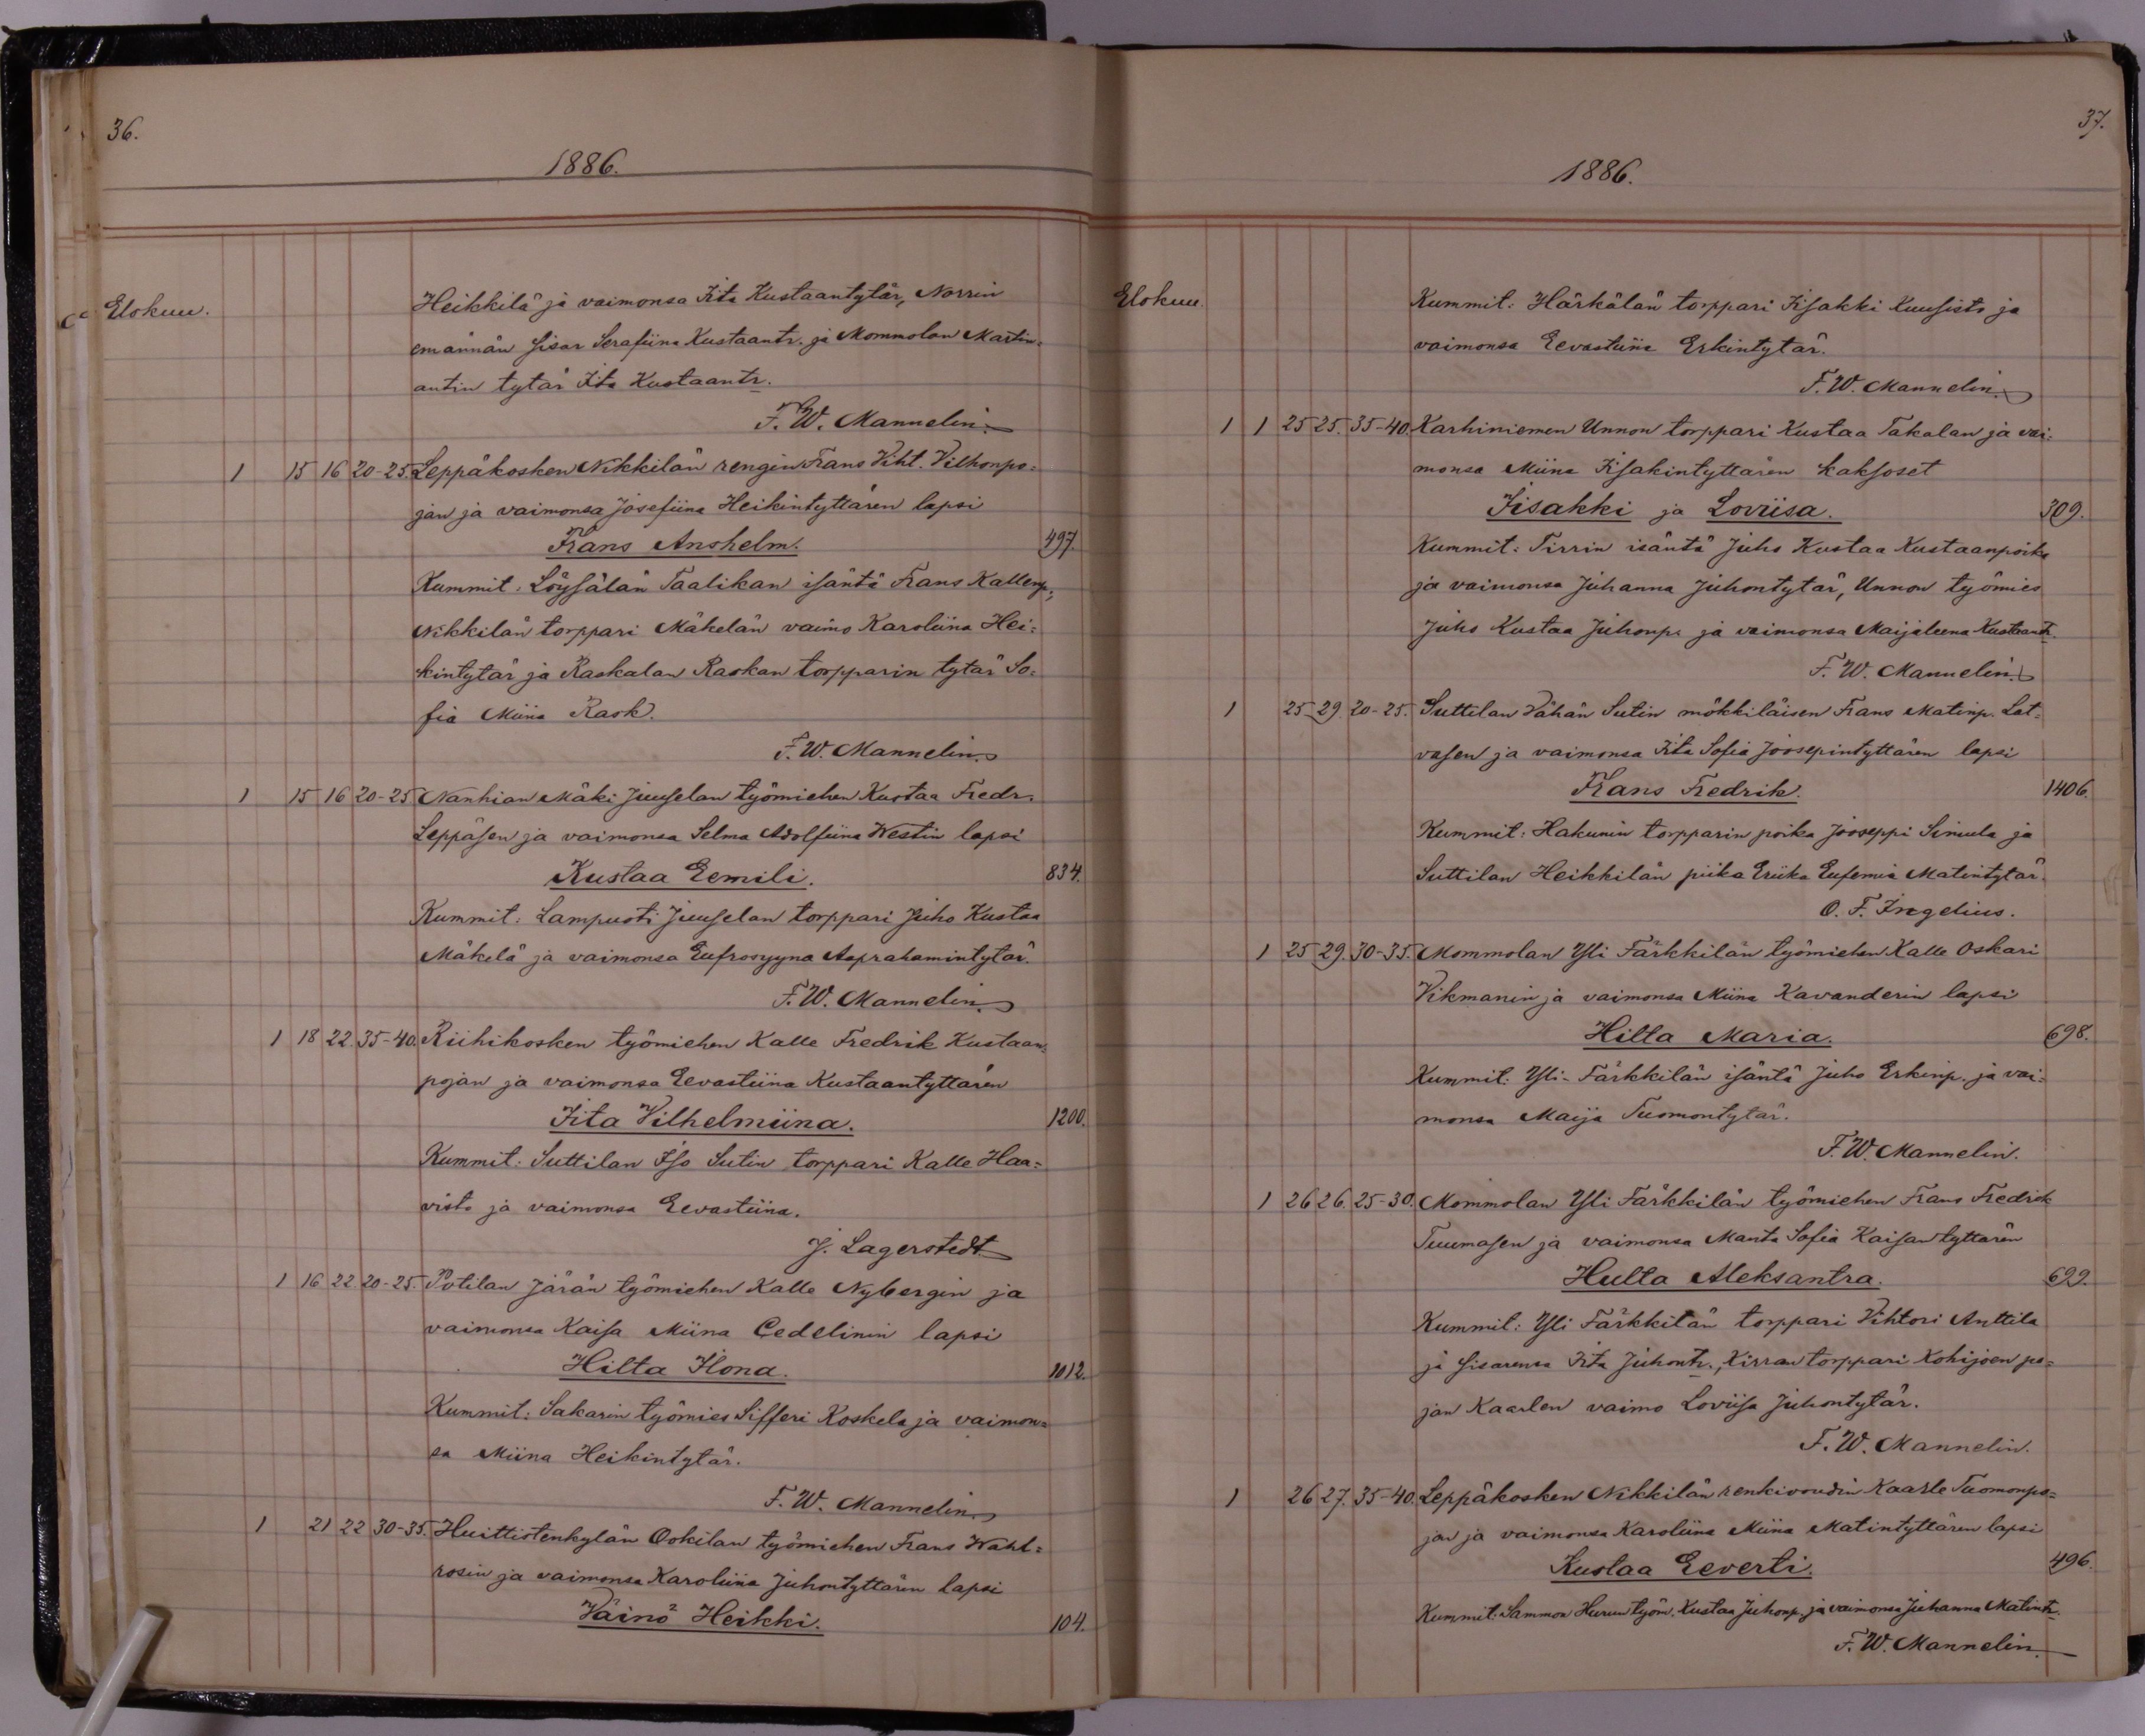 36.
1886.
Elokuu.
Heikkilä ja vaimonsa Iita Kustaantytär, Norrin
emännän sisar Serafiina Kustaantr. ja Mommolan Martin-
antin tytär Iita Kustaantr.
F. W. Mannelin.
1 15 16 20-25. Leppäkosken Nikkilän rengin Frans Viht. Vilhonpo=
jan ja vaimonsa Josefiina Heikintyttären lapsi
Frans Anshelm. 497.
Kummit: Löysälän Taalikan isäntä Frans Kallenp.,
Nikkilän torppari Mäkelän vaimo Karoliina Hei=
kintytär ja Raskalan Raskan torpparin tytär So=
fia Miina Rask.
F. W. Mannelin.
1 15 16 20-25 Nanhian Mäki Juuselan työmiehen Kustaa Fredr.
Leppäsen ja vaimonsa Selma Adolfiina Westin lapsi
Kustaa Eemili. 834.
Kummit: Lampuoti Juuselan torppari Juho Kustaa
Mäkelä ja vaimonsa Eufrosyyna Aaprahamintytär.
F. W. Mannelin.
1 18 22. 35-40. Riihikosken työmiehen Kalle Fredrik Kustaan=
pojan ja vaimonsa Eevastiina Kustaantyttären
Iita Vilhelmiina. 1200.
Kummit: Suttilan Iso Sutin torppari Kalle Haa=
visto ja vaimonsa Eevastiina.
J. Lagerstedt
1 16 22 20-25. Potilan Järän työmiehen Kalle Nybergin ja
vaimonsa Kaisa Miina Cedelinin lapsi
Hilta Ilona. 1012.
Kummit: Sakarin työmies Sifferi Koskela ja vaimon=
sa Miina Heikintytär.
F. W. Mannelin.
1 21 22 30-35. Huittistenkylän Ookilan työmiehen Frans Wahl=
rosin ja vaimonsa Karoliina Juhontyttären lapsi
Väinö Heikki. 104.
37.
1886.
Elokuu.
Kummit: Härkälän torppari Iisakki Kuusisto ja
vaimonsa Eevastiina Erkintytär.
F. W. Mannelin.
1 1 25 25. 35-40. Karhiniemen Unnon torppari Kustaa Takalan ja vai=
monsa Miina Iisakintyttären kaksoset
Iisakki ja Loviisa. 309.
Kummit: Tirrin isäntä Juho Kustaa Kustaanpoika
ja vaimonsa Juhanna Juhontytär, Unnon työmies
Juho Kustaa Juhonp. ja vaimonsa Maijaleena Kustaantr.
F. W. Mannelin.
1 25 29. 20-25. Suttilan Vähän Sutin mökkiläisen Frans Matinp. Lat=
vasen ja vaimonsa Iita Sofia Joosepintyttären lapsi
Frans Fredrik. 1406.
Kummit: Hakunin torpparin poika Jooseppi Simula ja
Suttilan Heikkilän piika Eriika Eufemia Matintytär.
O. F. Ingelius.
1 25 29. 30-35. Mommolan Yli Färkkilän työmiehen Kalle Oskari
Vikmanin ja vaimonsa Miina Kavanderin lapsi
Hilta Maria. 698.
Kummit: Yli-Färkkilän isäntä Juho Erkinp. ja vai=
monsa Maija Tuomontytär.
F. W. Mannelin.
1 26 26. 25-30. Mommolan Yli Färkkilän työmiehen Frans Fredrik
Tuumasen ja vaimonsa Manta Sofia Kaisantyttären
Hulta Aleksantra. 699.
Kummit: Yli Färkkilän torppari Vihtori Anttila
ja sisarensa Iita Juhontr., Kirran torppari Kohijoen po=
jan Kaarlen vaimo Loviisa Juhontytär.
F. W. Mannelin.
1 26 27. 35-40. Leppäkosken Nikkilän renkivoudin Kaarle Tuomonpo=
jan ja vaimonsa Karoliina Miina Matintyttären lapsi
Kustaa Eeverti. 496.
Kummit: Sammon Hurun työm. Kustaa Juhonp. ja vaimonsa Juhanna Matintr.
F. W. Mannelin.